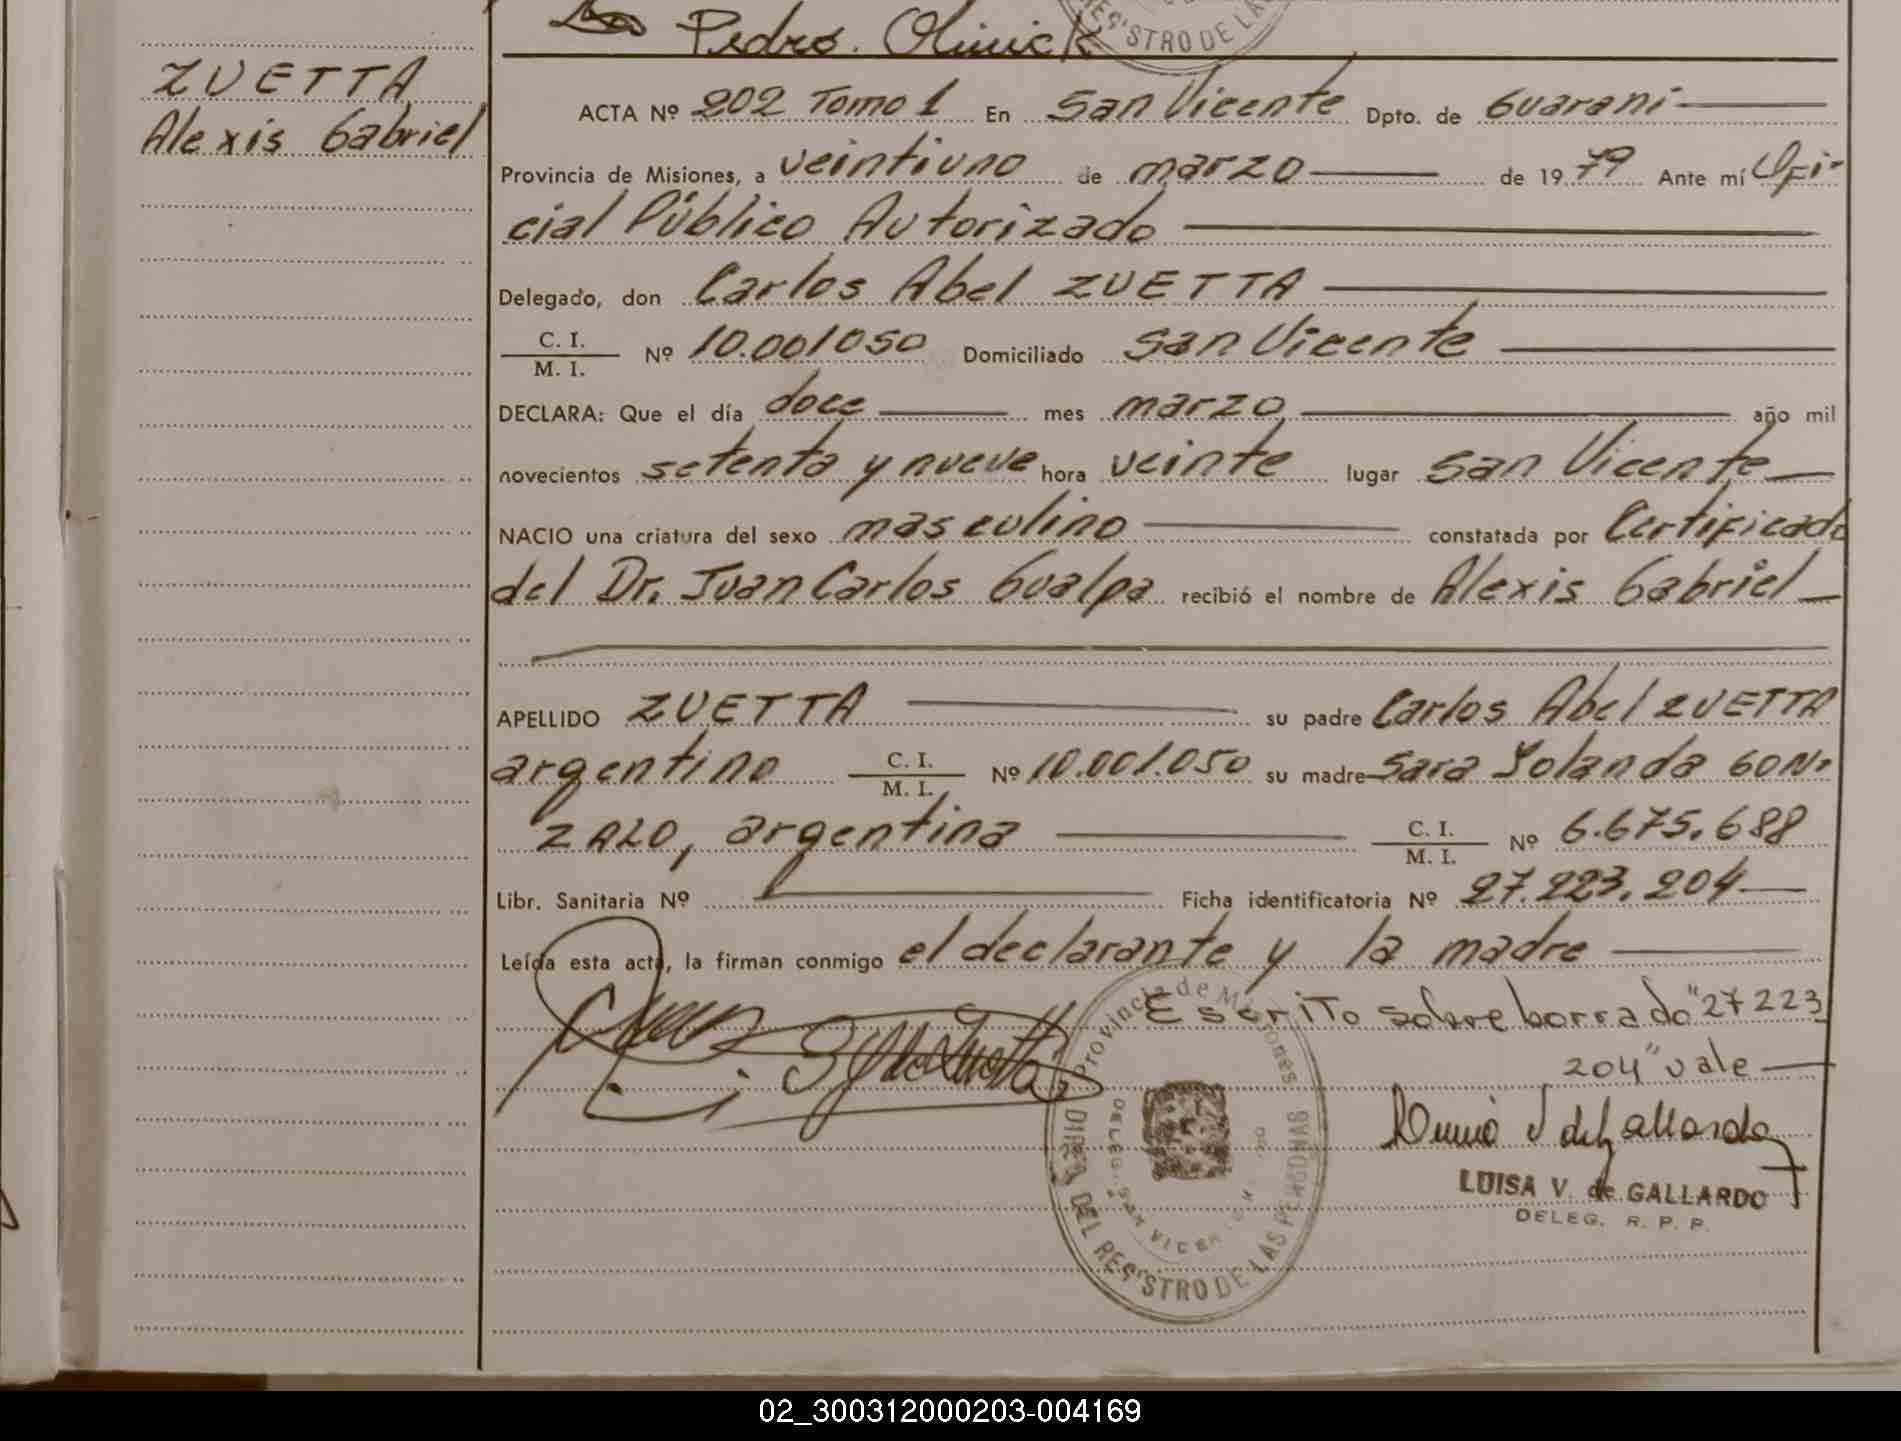 Pedro. Olinick
ZUETTA
Alexis Gabriel
ACTA Nº 202 Tomo 1 En San Vicente Dpto. de Guaraní
Provincia de Misiones, a veintiuno de marzo de 1979 Ante mí Ofi-
cial Público Autorizado
Delegado, don Carlos Abel ZUETTA
C. I.
M. I. Nº 10.001050 Domiciliado San Vicente
DECLARA: Que el día doce mes marzo año mil
novecientos setenta y nueve hora veinte lugar San Vicente
NACIO una criatura del sexo masculino constatada por Certificado
del Dr. Juan Carlos Gualpa recibió el nombre de Alexis Gabriel
APELLIDO ZUETTA su padre Carlos Abel ZUETTA
argentino C. I. M. I. Nº 10.001.050 su madre Sara Yolanda GON-
ZALO, argentina C. I. M. I. Nº 6.675.688
Libr. Sanitaria Nº Ficha identificatoria Nº 27.223.204
Leída esta acta, la firman conmigo el declarante y la madre
Escrito sobre borrado "27223
204" vale
Provincia de Misiones
DIREC. DEL REGISTRO DE LAS PERSONAS
DELEG. SAN VICENTE
LUISA V. de GALLARDO
DELEG. R. P. P.
02_300312000203-004169